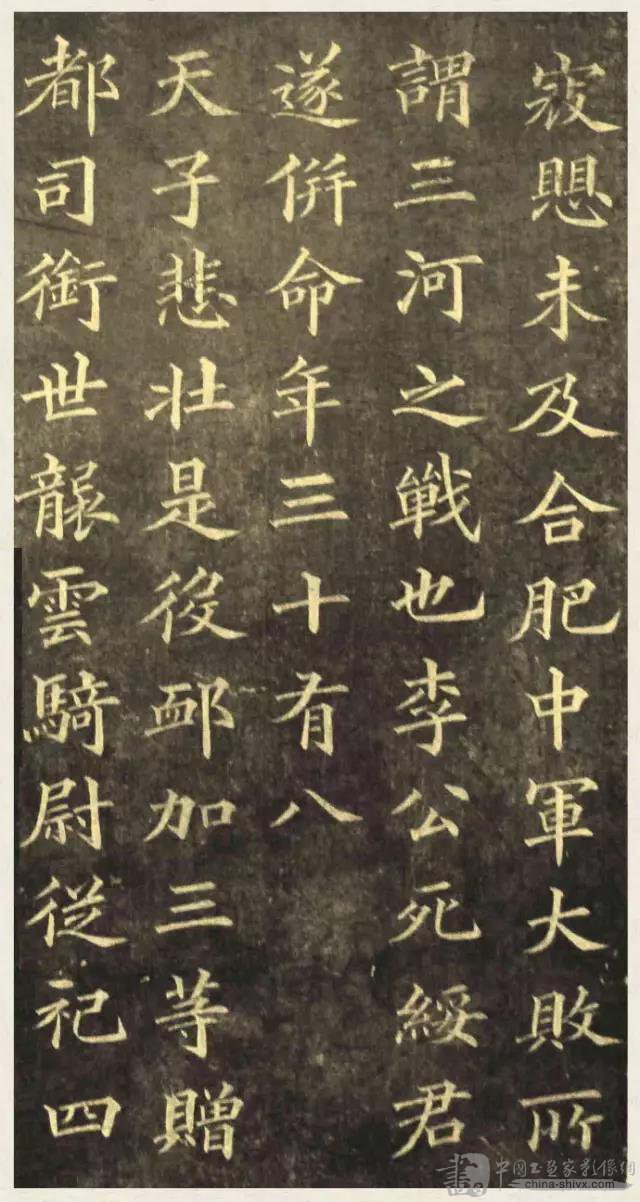 寇愳未及合肥中軍大敗所
謂三河之戰也李公死綏君
遂併命年三十有八
天子悲壯是役卹加三等贈
都司銜世襲雲騎尉從祀四
中國書畫家影像網
china-shivx.com